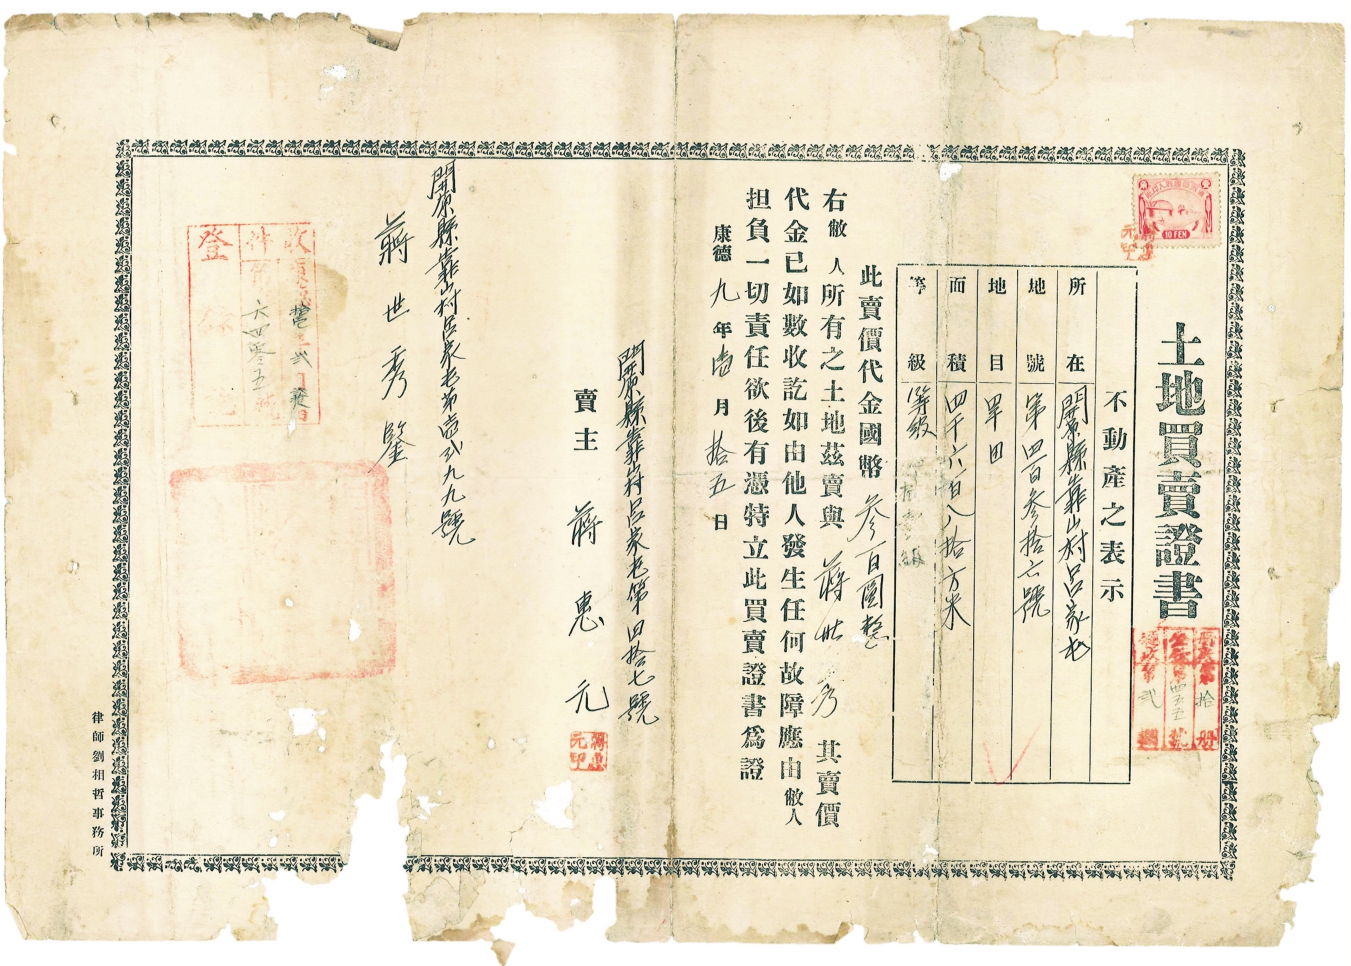 土地買賣證書
10 FEN
蔣惠元印
拾册
第四五五號
第弍
不動產之表示
所在 開原縣靠山村呂家屯
地號 第四百叁拾六號
地目 旱田
面積 四千六百八拾方米
等級 等級
此賣價代金國幣叁百圓整
右敝人所有之土地茲賣與蔣世秀其賣價
代金已如數收訖如由他人發生任何故障應由敝人
担負一切責任欲後有憑特立此買賣證書爲證
康德九年壹月拾五日
開原縣靠山村呂家屯第四拾七號
賣主 蔣惠元
蔣惠元印
開原縣靠山村呂家屯第壹弍九九號
蔣世秀鑒
收
件
第六四零五號
登
律師劉相哲事務所